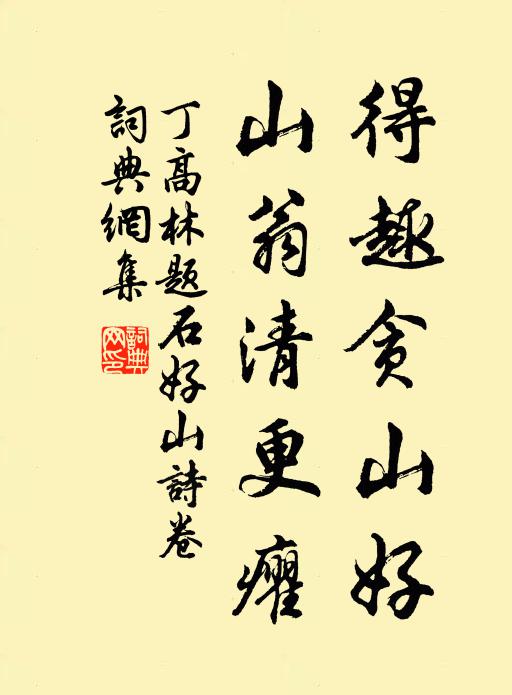 得趣貪山好
山翁清更癯
丁高林題石好山詩卷
詞典網集
詞典網印